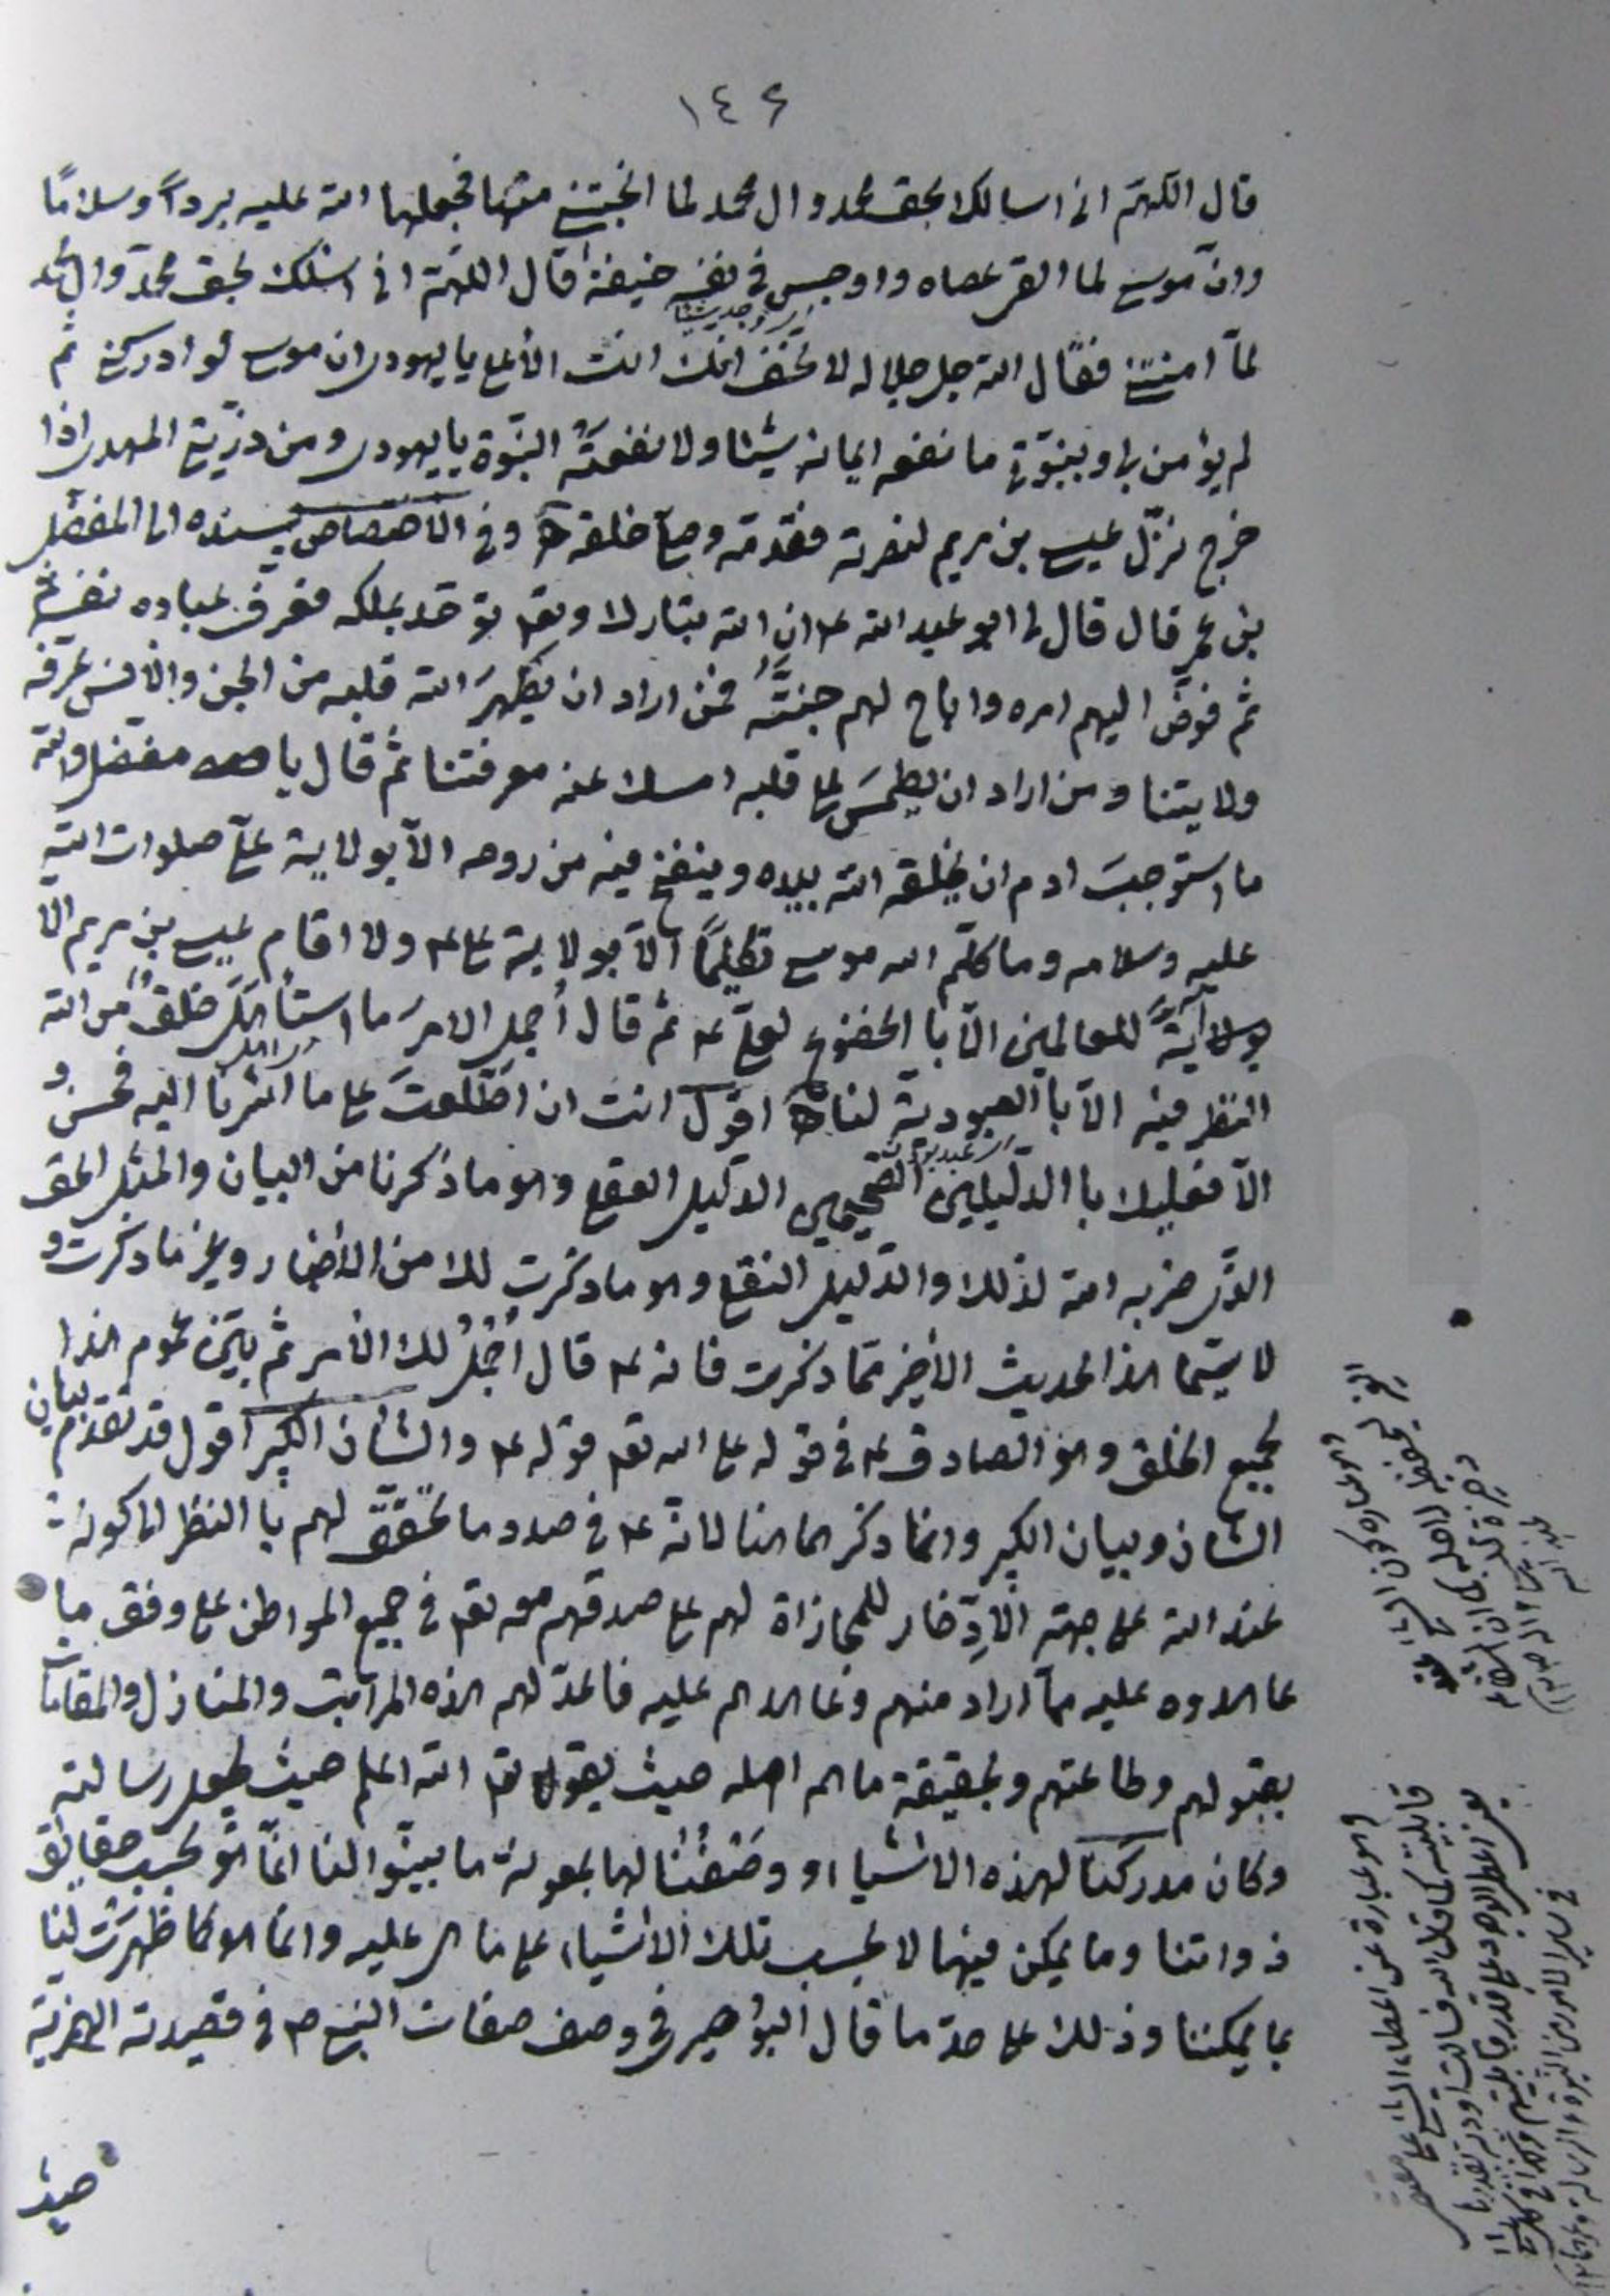 ١٤٦
قال اللهم انى اسالك بحق محمد وال محمد لما انجيتنى منها فجعلها الله عليه برداً وسلامًا
وانّ موسى لما القى عصاه واوجس فى نفسه خيفة قال اللهم انى اسئلك بحق محمد وال محمد
لمّا امنتنى فقال الله جل جلاله لا تخف انك انت الأعلى يا يهودى ان موسى لو ادركنى ثم
لم يؤمن بى وبنبوّتى ما نفعه ايمانه شيئا ولا نفعته النبوّة يا يهودى ومن ذرّيتى المهدى اذا
خرج نزّل عيسى بن مريم لنصرته فقدّمه وصلى خلفه وفى الأختصاص بسنده الى المفضل
بن عمر قال قال لى ابو عبد الله ع ان الله تبارك وتعـ توحّد بملكه فعرف عباده نفسه
ثم فوض اليهم امره واباح لهم جنّته فمن اراد ان يطهرَ الله قلبه من الجن والأنس عرّفه
ولايتنا ومن اراد ان يطمسَ على قلبه امسك عنه معرفتنا ثم قال يا مفضل والله
ما استوجبَ ادم ان يخلقه الله بيده وينفخ فيه من روحه الاّ بولاية علىّ صلوات الله
عليه وسلامه وما كلّم الله موسى تكليمًا الاّ بولاية على ع ولا اقام عيسى بن مريم الا
آيةً للعالمين الاّ با الخضوع لعلىّ ع ثم قال أجمل الامرَ ما استأهَلَ خلقٌ من الله
النظر فيه الاّ با العبودية لنا اقول انت ان اطّلعتَ على ما اشرنا اليه فحسن و
الاّ فعليك با الدّليلين الصّحيحين الدّليل العقلى وهو ما ذكرنا من البيان والمثل الحق
الذى ضربه الله لذلك والدّليل النقلى وهو ما ذكرت لك من الأخبار وغير ما ذكرت و
لا سيّما هذا الحديث الأخير ممّا ذكرت فانه ع قال أجملُ لك الأمر ثم بيّن عموم هذا
لجميع الخلق وهو الصادق ع فى قوله على الله تعـ قوله ع والشأن الكبير اقول قد تقدّم بيان
الشان وبيان الكبير وانما ذكرهما هنا لانّه ع فى صدد ما تحقّق لهم با النظر الى كونه
عند الله على جهة الأدّخار للمجازاة لهم على صدقهم معه تعـ فى جميع المواطن على وفق ما
عاهدوه عليه ممّا اراد منهم وعاهدهم عليه فاعدّ لهم هذه المراتب والمنازل والمقامات
بقبولهم وطاعتهم وبحقيقة ما هم اهله حيث يقول تعـ الله اعلم حيث يجعل رسالته
وكان مدركنا لهذه الاشياء ووصفُنا لها بمعونة ما بيّنوا لنا انّما هو بحسب حقايق
ذواتنا وما يمكن فيها لا بحسب تلك الأشياء على ما هى عليه وانما هو كما ظهرَت لنا
بما يمكننا وذلك على حدّ ما قال البوصيرى فى وصف صفات النبى ص فى قصيدته الهمزية
حيث